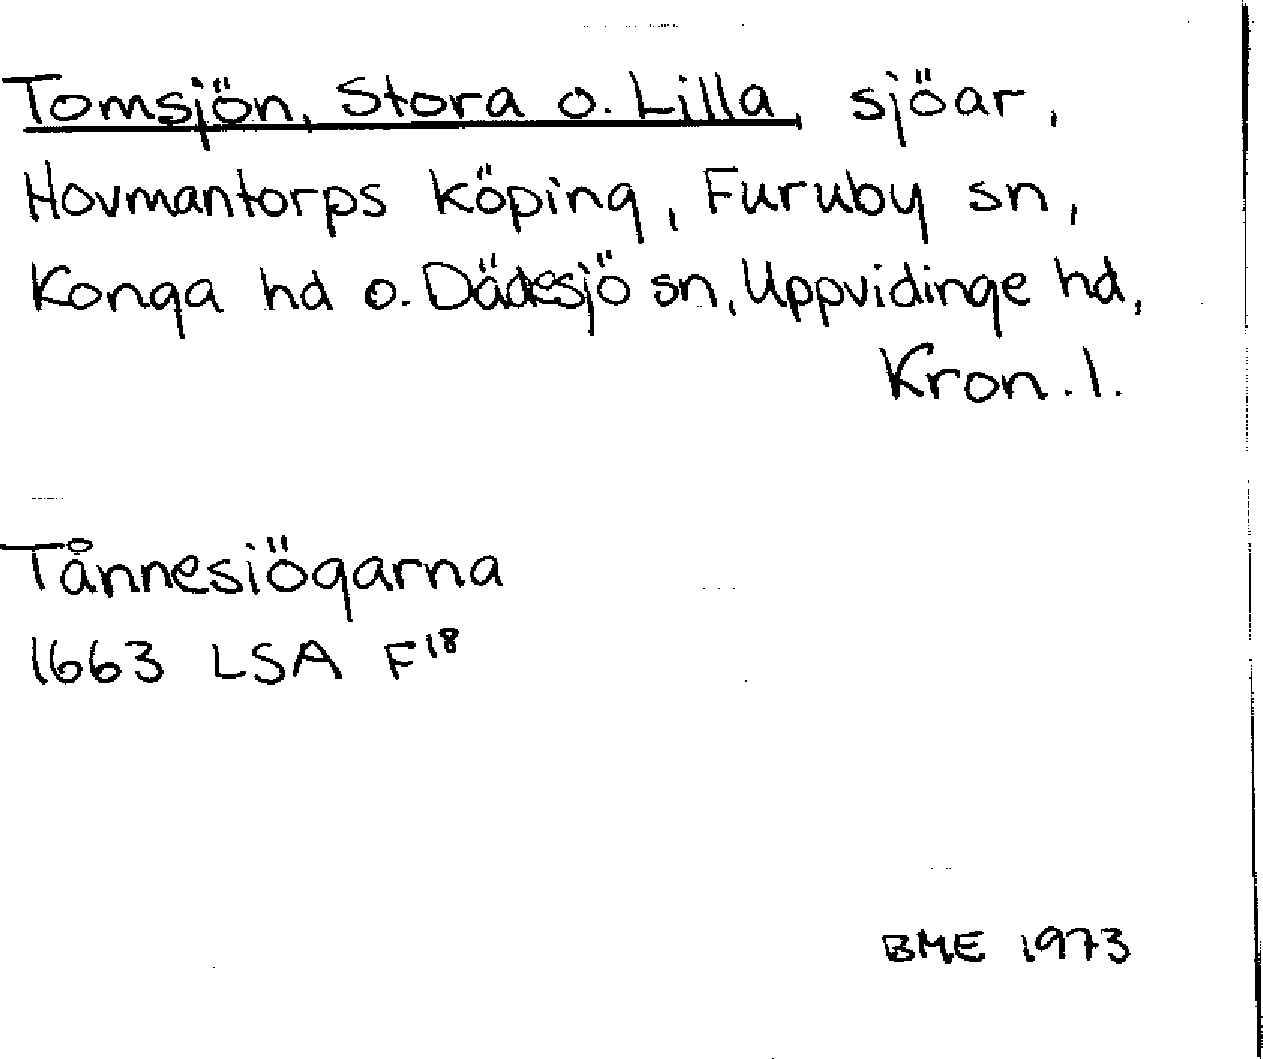 Tomsjön, Stora o. Lilla, sjöar,
Hovmantorps köping, Furuby sn,
Konga hd o. Dädesjö sn, Uppvidinge hd,
Kron. l.
Tånnesiögarna
1663 LSA F18
BME 1973